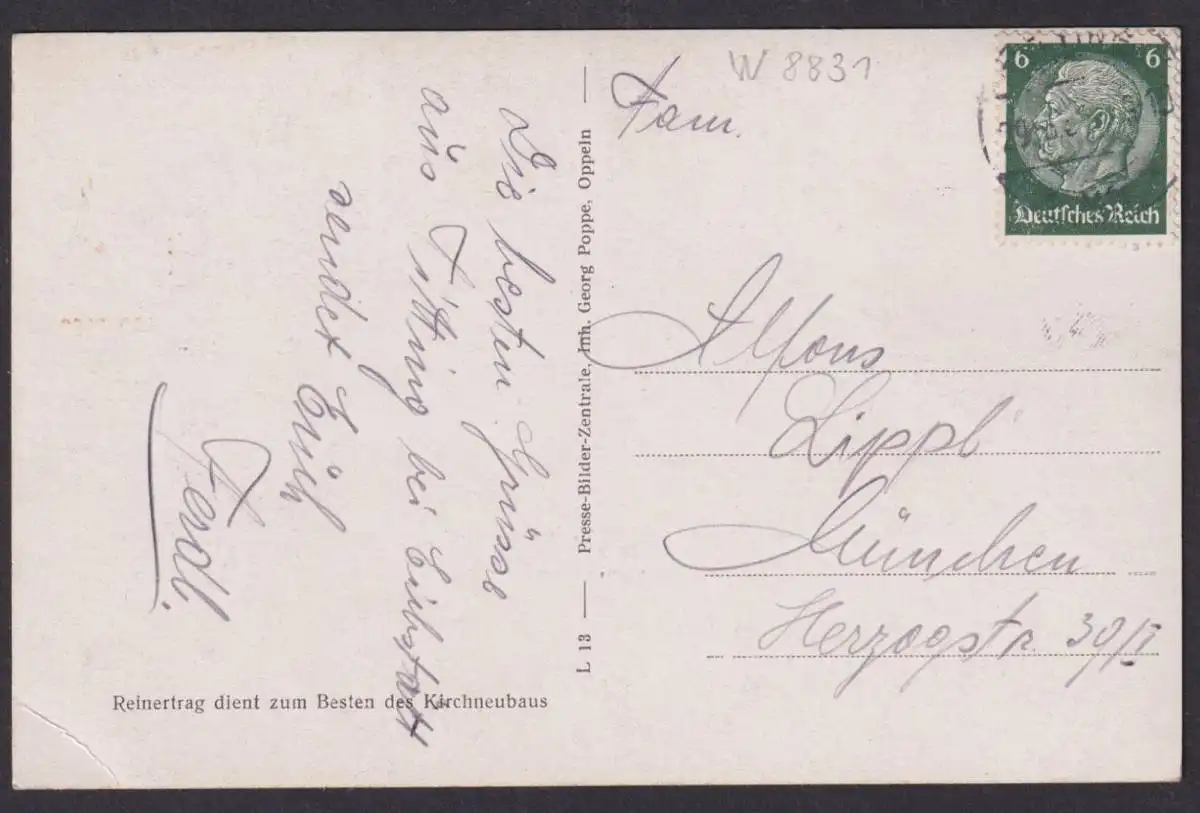 W 8831
6 6
Deutsches Reich
Die besten Grüsse
aus Titting bei Eichstätt
sendet Euch
Ferdl.
L 13 — Presse-Bilder-Zentrale, Inh. Georg Poppe, Oppeln —
Fam.
Alfons
Lippl
München
Herzogstr. 39/I
Reinertrag dient zum Besten des Kirchneubaus